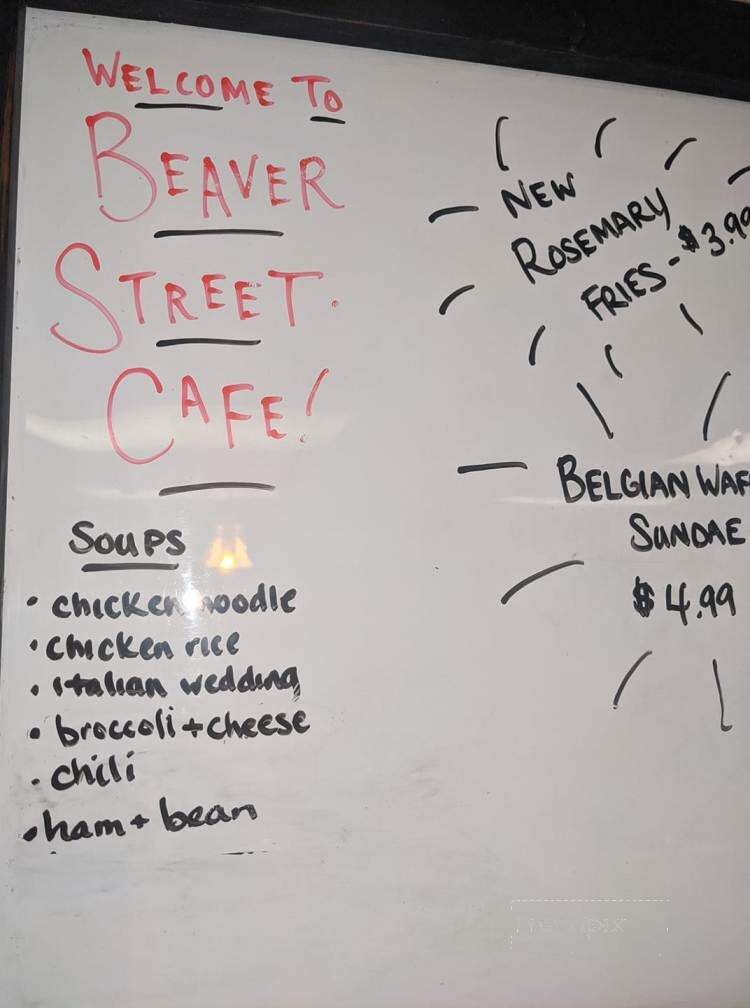 WELCOME TO
BEAVER
STREET
CAFE!
SOUPS
• chicken noodle
• chicken rice
• italian wedding
• broccoli + cheese
• chili
• ham + bean
NEW
ROSEMARY
FRIES - $3.99
BELGIAN WAF
SUNDAE
$4.99